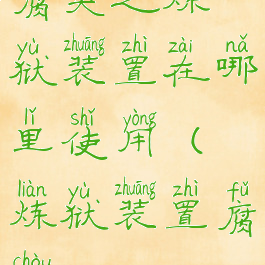 腐臭之炼
yù zhuāng zhì zài nǎ
狱装置在哪
lǐ shǐ yòng
里使用（
liàn yù zhuāng zhì fǔ
炼狱装置腐
chòu